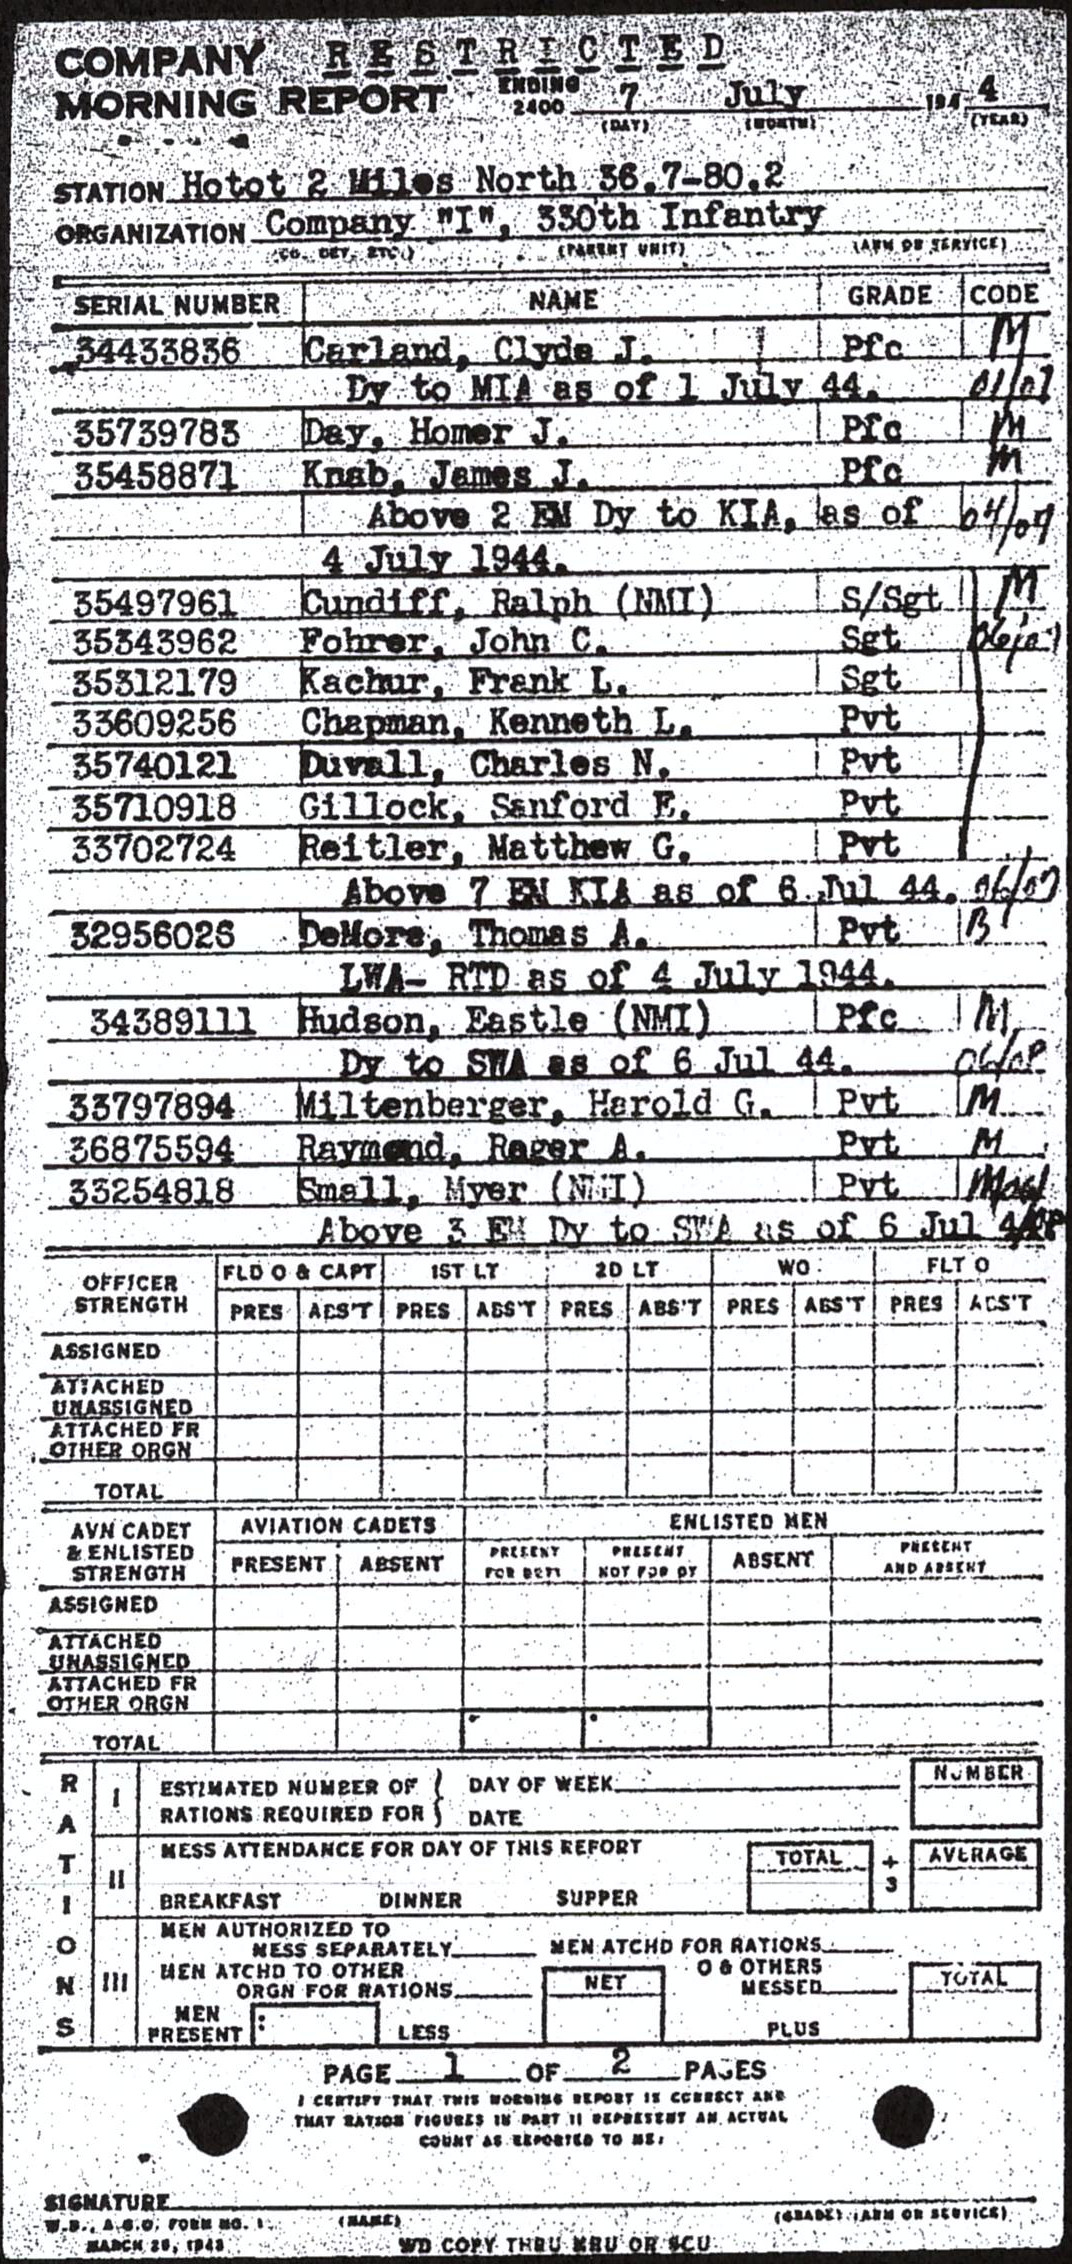 COMPANY R E S T R I C T E D
MORNING REPORT ENDING 2400 7 July 194 4
(DAY) (MONTH) (YEAR)
STATION Hotot 2 Miles North 36.7-80.2
ORGANIZATION Company "I", 330th Infantry
(CO. DET, ETC.) (PARENT UNIT) (ARM OR SERVICE)
SERIAL NUMBER NAME GRADE CODE
34433836 Carland, Clyde J. Pfc M
Dy to MIA as of 1 July 44. 01/07
35739783 Day, Homer J. Pfc M
35458871 Knab, James J. Pfc M
Above 2 EM Dy to KIA, as of 04/07
4 July 1944.
35497961 Cundiff, Ralph (NMI) S/Sgt M
35343962 Fohrer, John C. Sgt 06/07
35312179 Kachur, Frank L. Sgt
33609256 Chapman, Kenneth L. Pvt
35740121 Duvall, Charles N. Pvt
35710918 Gillock, Sanford E. Pvt
33702724 Reitler, Matthew G. Pvt
Above 7 EM KIA as of 6 Jul 44. 06/07
32956026 DeMore, Thomas A. Pvt B
LWA- RTD as of 4 July 1944.
34389111 Hudson, Eastle (NMI) Pfc M
Dy to SWA as of 6 Jul 44.
33797894 Miltenberger, Harold G. Pvt M
36875594 Raymond, Roger A. Pvt M
33254818 Small, Myer (NMI) Pvt
Above 3 EM Dy to SWA as of 6 Jul
OFFICER STRENGTH FLD O & CAPT 1ST LT 2D LT WO FLT O
PRES ABS'T PRES ABS'T PRES ABS'T PRES ABS'T PRES ABS'T
ASSIGNED
ATTACHED
UNASSIGNED
ATTACHED FR
OTHER ORGN
TOTAL
AVN CADET & ENLISTED STRENGTH AVIATION CADETS ENLISTED MEN
PRESENT ABSENT PRESENT FOR DUTY PRESENT NOT FOR DY ABSENT PRESENT AND ABSENT
ASSIGNED
ATTACHED
UNASSIGNED
ATTACHED FR
OTHER ORGN
TOTAL
RATIONS
I ESTIMATED NUMBER OF DAY OF WEEK NUMBER
RATIONS REQUIRED FOR DATE
II MESS ATTENDANCE FOR DAY OF THIS REPORT TOTAL ÷ 3 AVERAGE
BREAKFAST DINNER SUPPER
III MEN AUTHORIZED TO
MESS SEPARATELY MEN ATCHD FOR RATIONS
MEN ATCHD TO OTHER O & OTHERS
ORGN FOR RATIONS NET MESSED TOTAL
MEN
PRESENT LESS PLUS
PAGE 1 OF 2 PAGES
I CERTIFY THAT THIS MORNING REPORT IS CORRECT AND
THAT RATION FIGURES IN PART II REPRESENT AN ACTUAL
COUNT AS REPORTED TO ME:
SIGNATURE
(NAME) (GRADE) (ARM OR SERVICE)
W.D., A.G.O. FORM NO. 1
MARCH 26, 1943 WD COPY THRU MRU OR SCU